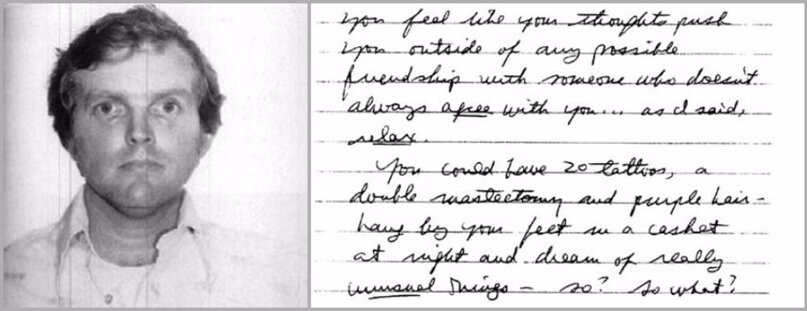 you feel like your thoughts push
you outside of any possible
friendship with someone who doesn't
always agree with you... as I said,
relax.
You could have 20 tattoos, a
double mastectomy and purple hair -
hang by your feet in a casket
at night and dream of really
unusual things - so? So what?